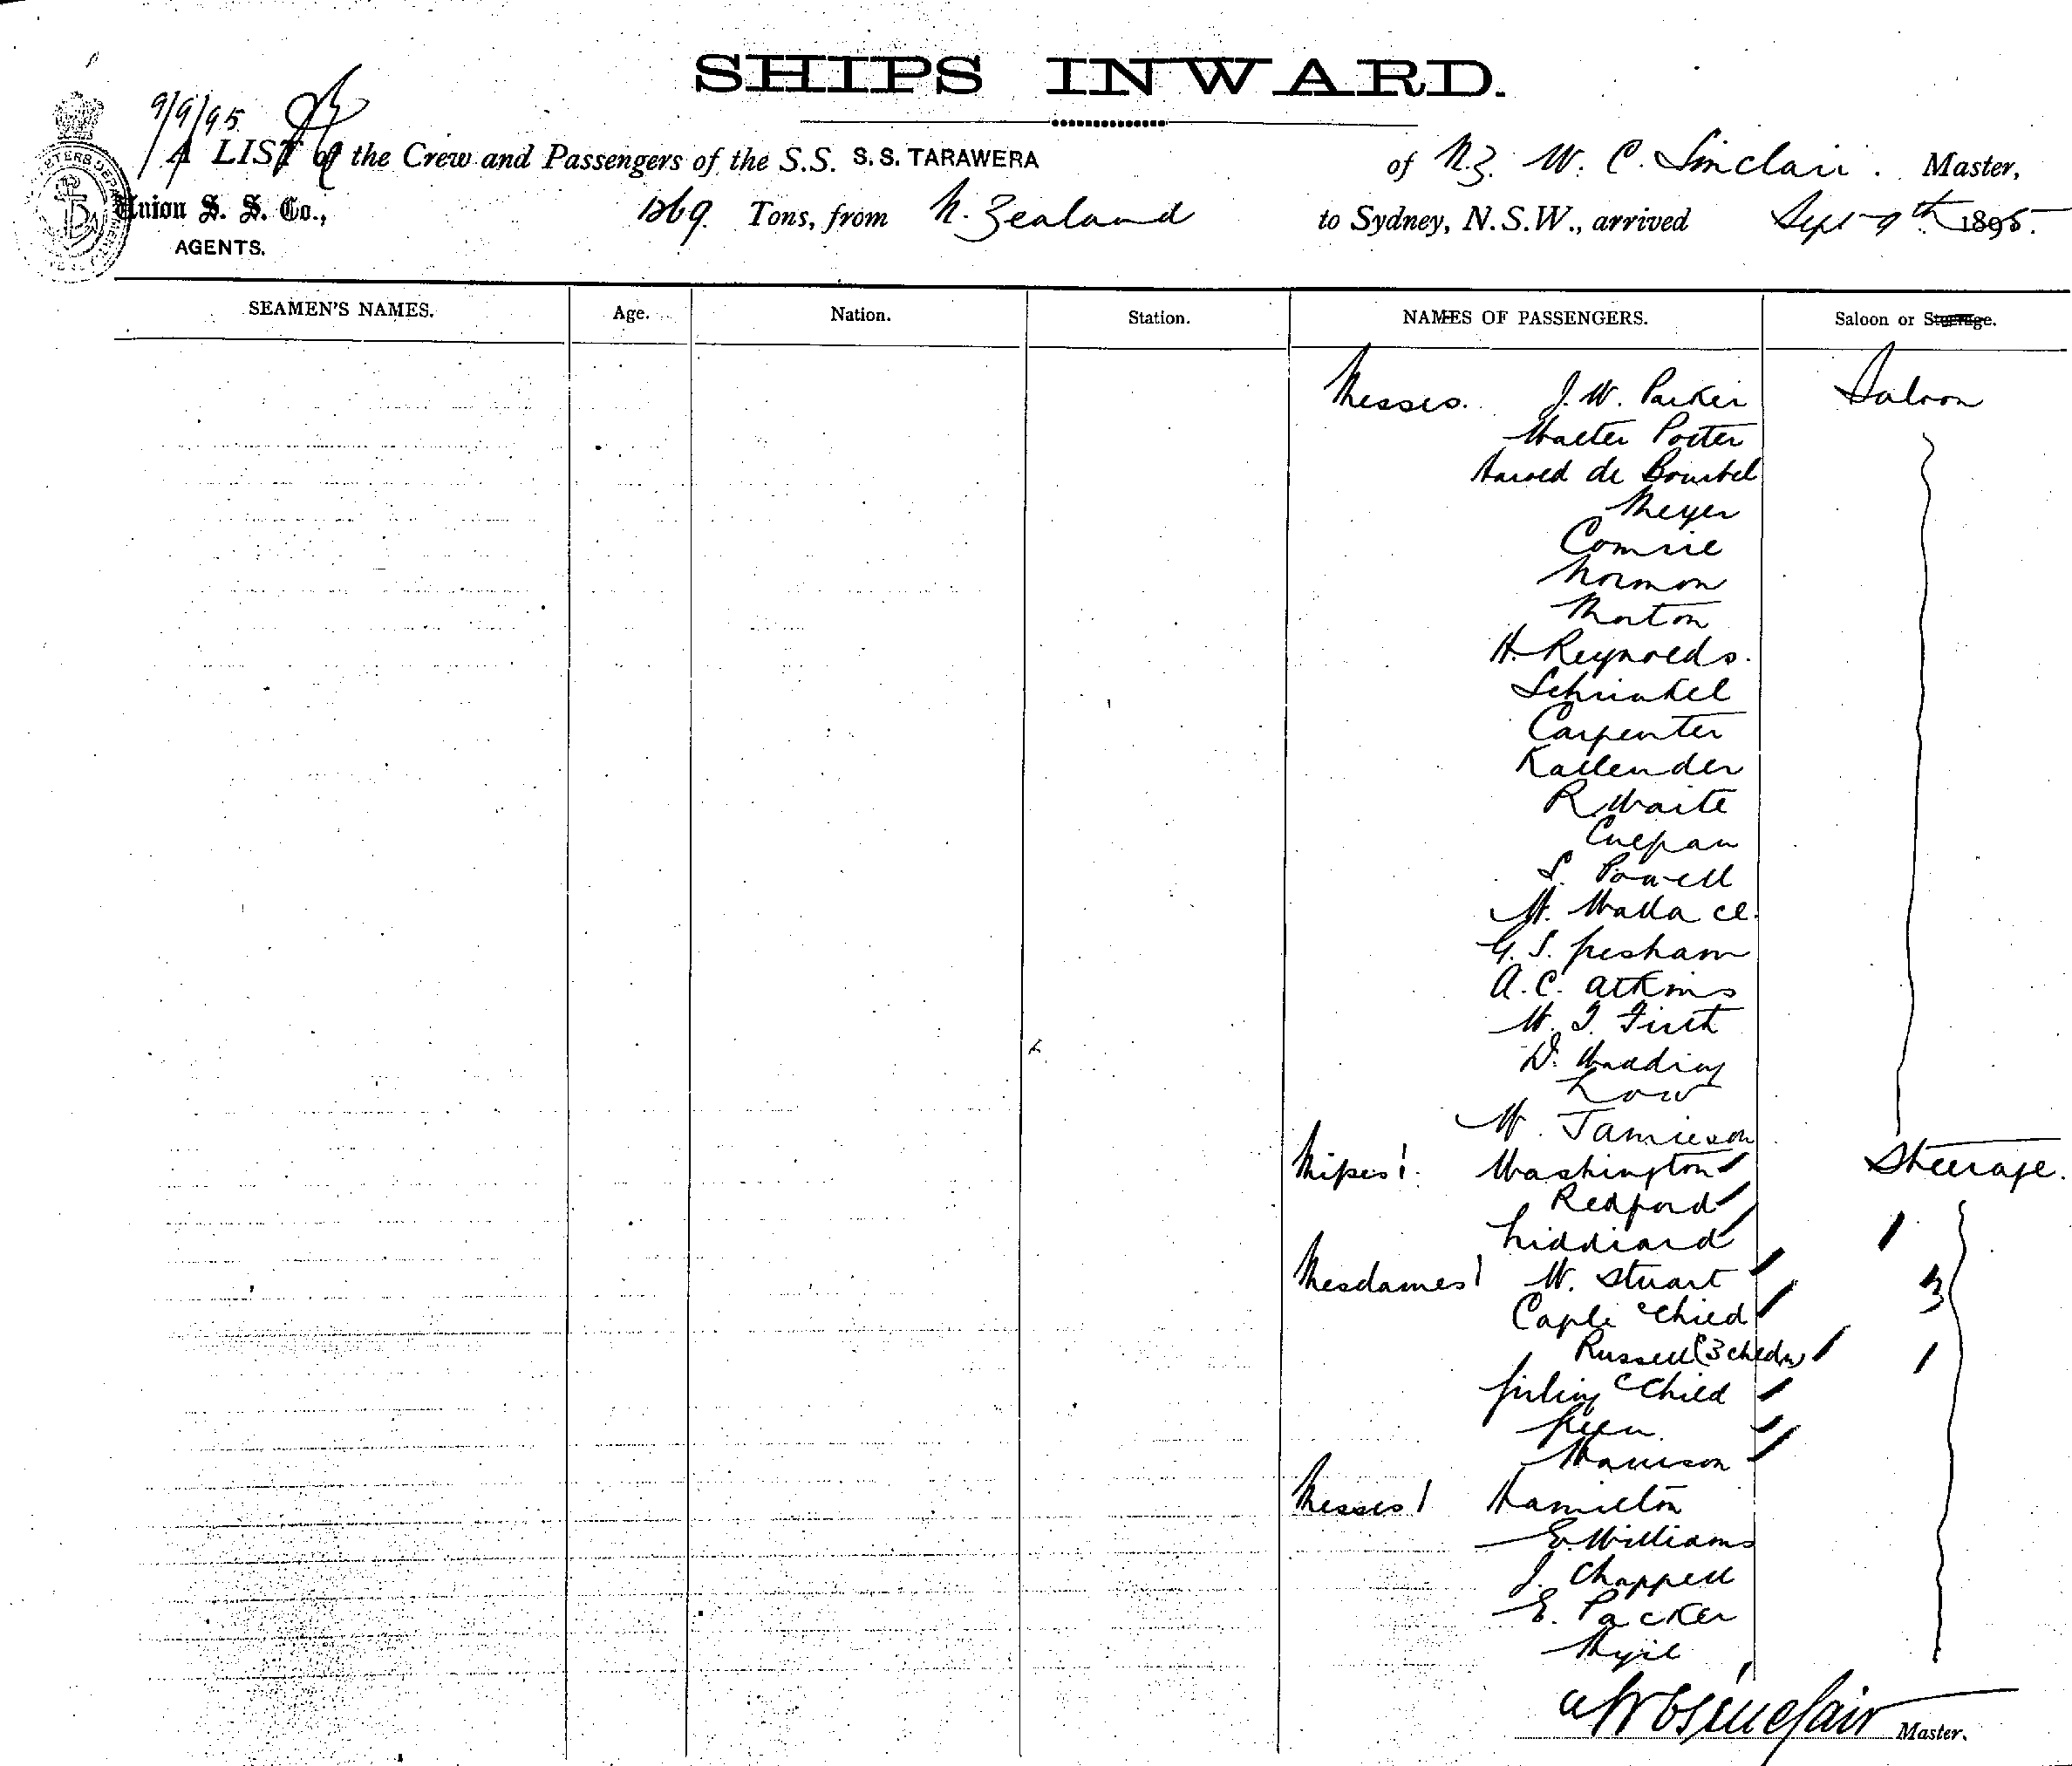 SHIPS INWARD.
9/9/95
A LIST of the Crew and Passengers of the S.S. S.S. TARAWERA of N.Z. W. C. Sinclair. Master,
Union S. S. Co., 1269. Tons, from N. Zealand to Sydney, N.S.W., arrived Sept 9th 1895.
AGENTS.
SEAMEN'S NAMES. Age. Nation. Station. NAMES OF PASSENGERS. Saloon or Steerage.
Messrs. J. W. Parker Saloon
Walter Porter
Harold de Bourbel
Meyer
Comrie
Norman
Morton
H. Reynolds.
Carpenter
Kallender
R Waite
S. Powell
W. Wallace.
G. S. Gresham
A. C. Atkins
W. J. Firth
D.
Low
W. Jamieson
Misses Washington Steerage.
Redford
Liddiard 1
Mesdames W. Stuart 3
Caple & Child
Russell (3 chedn) 1
Child
Green.
Harrison
Messrs Hamilton
E. Williams
J. Chappell
E. Packer
W C Sinclair Master.